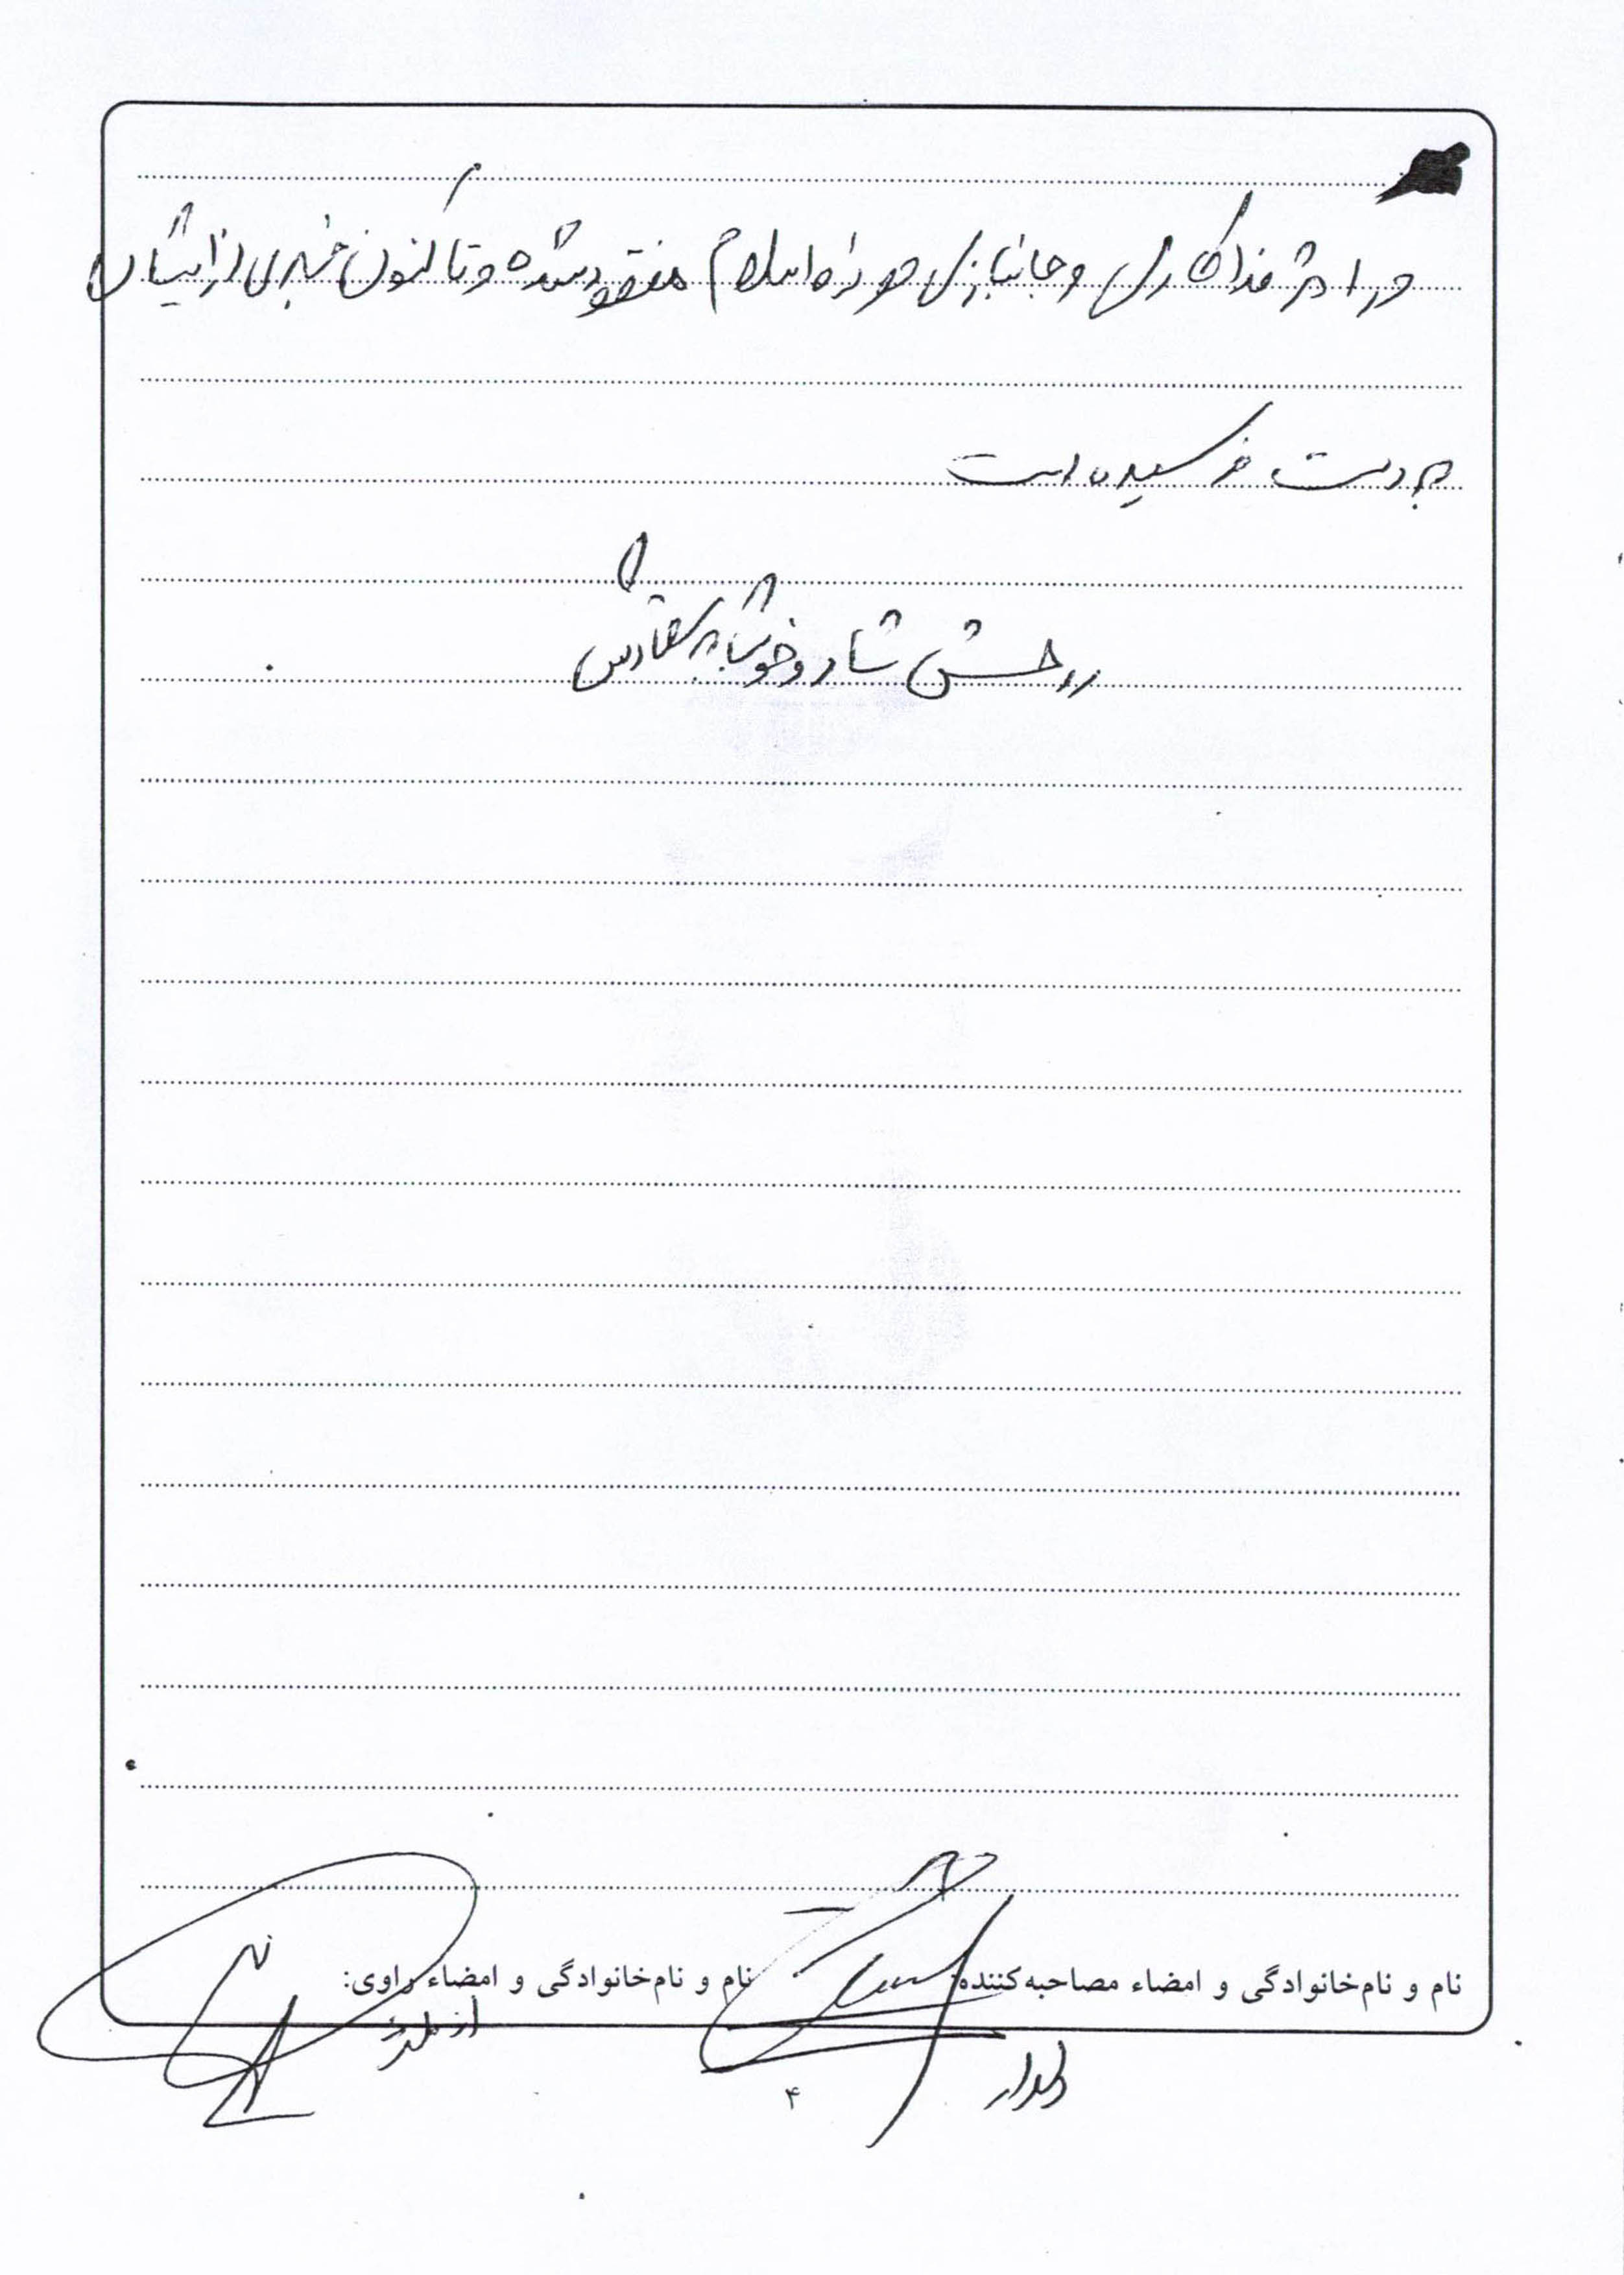 در اثر فداکاری و جانبازی در راه اسلام مفقود شده و تاکنون خبری از ایشان
به دست نرسیده است
روحش شاد و
نام و نام‌خانوادگی و امضاء مصاحبه‌کننده: نام و نام‌خانوادگی و امضاء راوی:
دلدار
۴